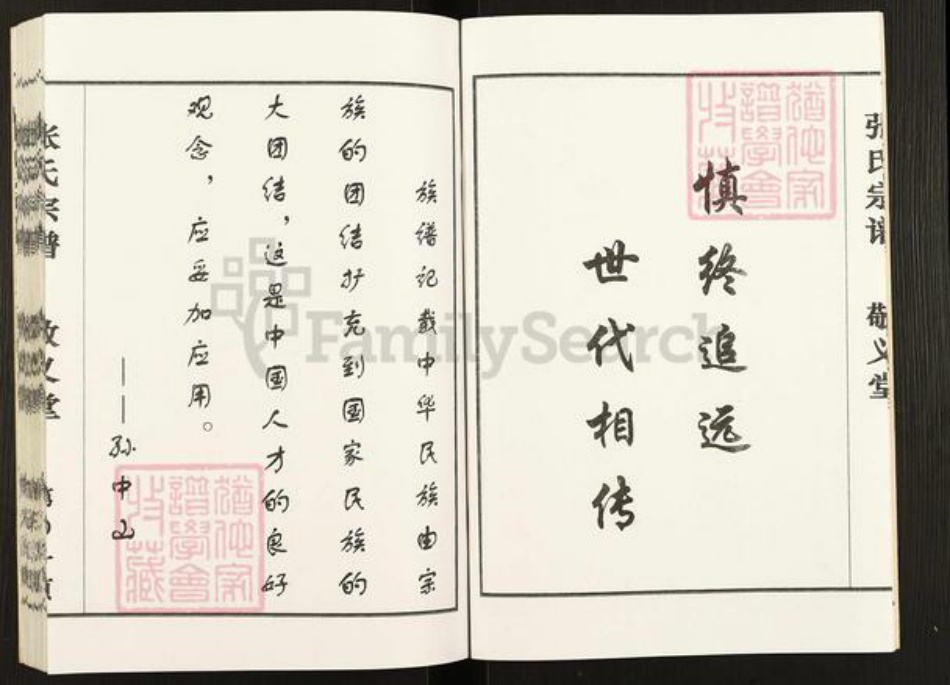 张氏宗谱 敬义堂
慎终追远
世代相传
猶他家
譜學會
收藏
族谱记载中华民族由宗
族的团结扩充到国家民族的
大团结，这是中国人才的良好
观念，应妥加应用。
——孙中山
猶他家
譜學會
收藏
张氏宗谱 敬义堂
FamilySearch